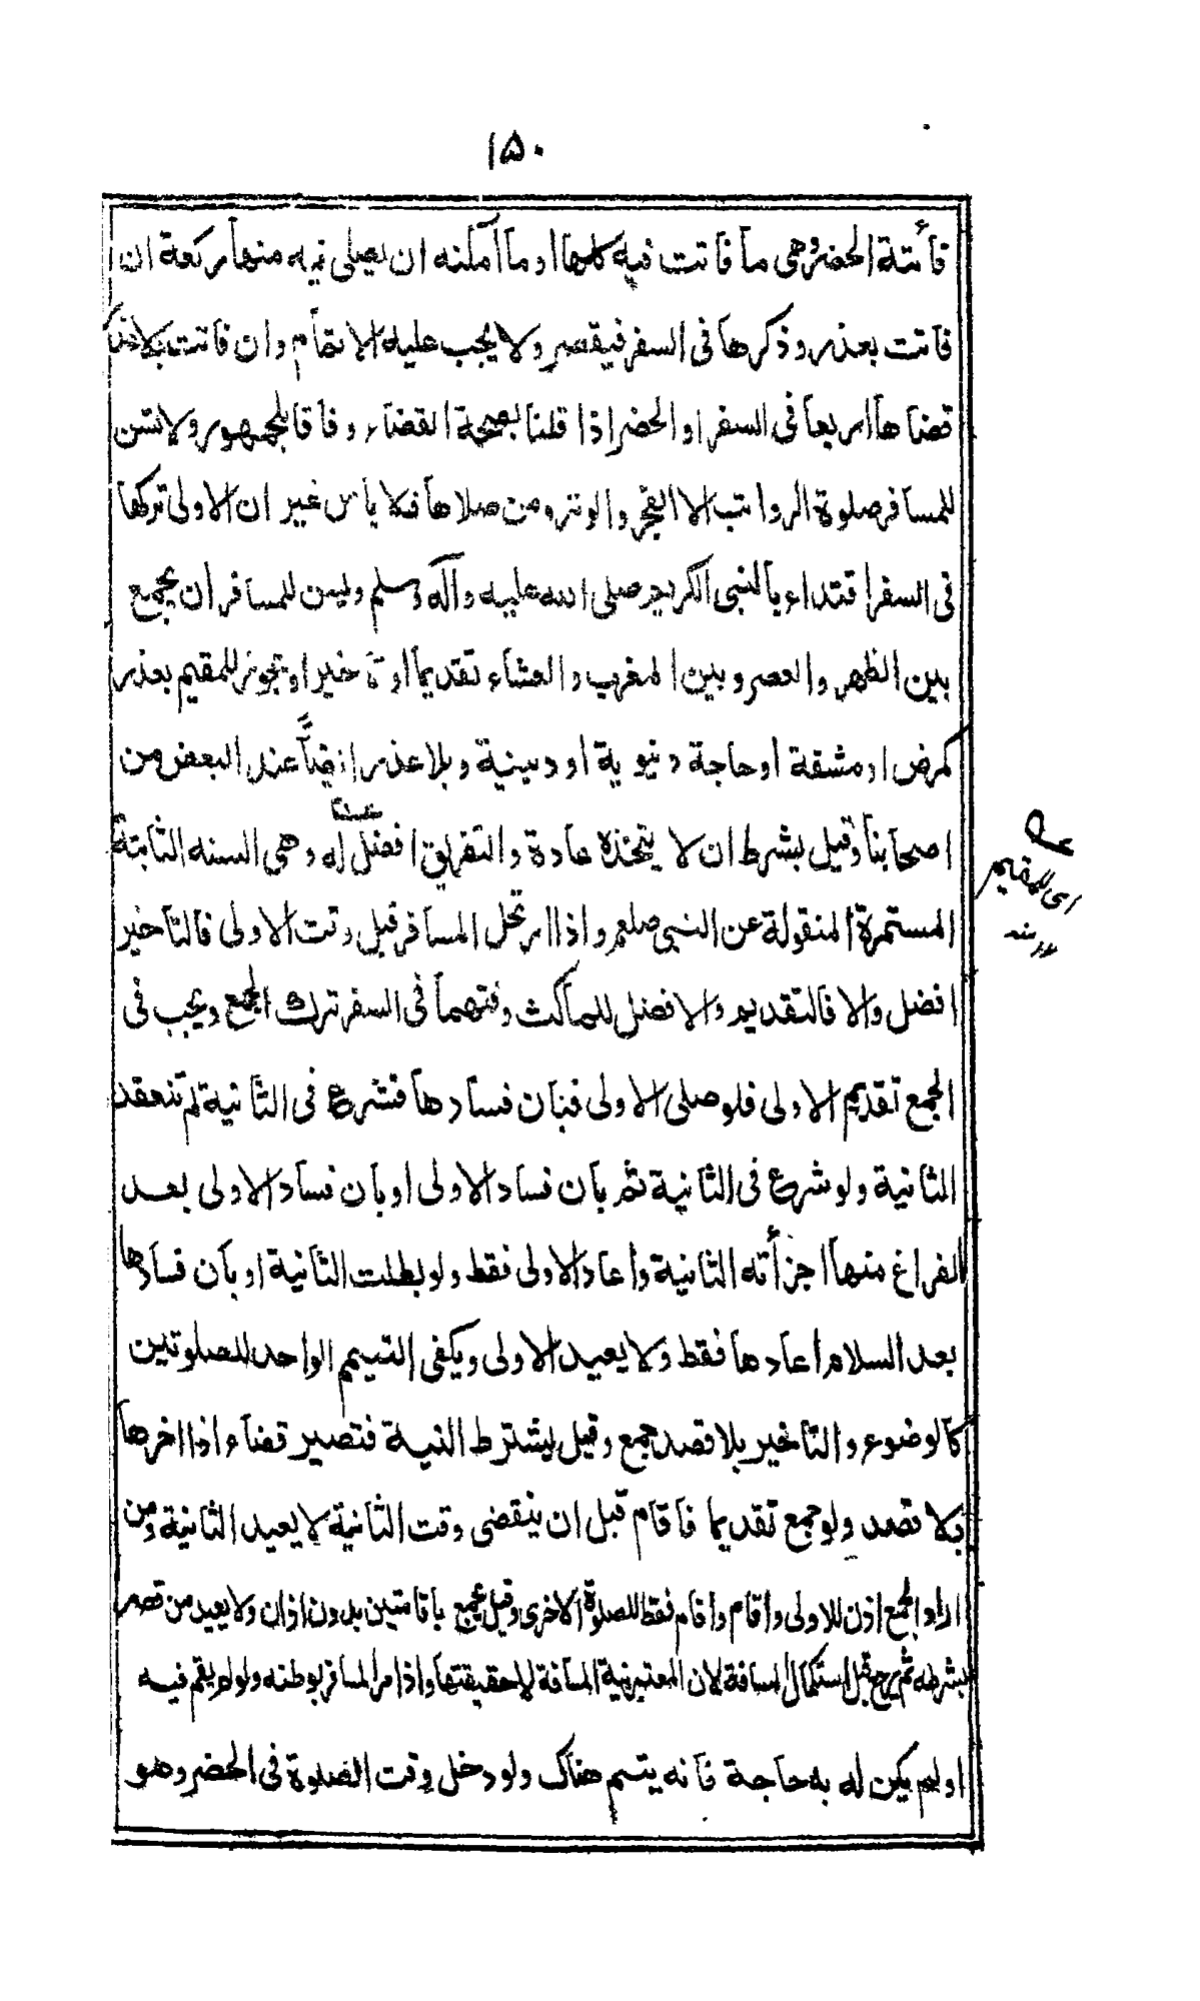 ۱۵۰
فأئتة الحضر وهى ما فاتت فيه كلها او ما امكنه ان يصلى فيه منها ركعة ان
فاتت بعذر وذكرها فى السفر فيقصر ولا يجب عليه الاتمام وان فاتت بلا عذر
قضاها اربعا فى السفر او الحضر اذا قلنا بصحة القضاء وفاقا للجمهور ولا تسن
للمسافر صلوة الرواتب الا الفجر والوتر ومن صلاها فلا بأس غير ان الاولى تركها
فى السفر اقتداء بالنبى الكريم صلى الله عليه وآله وسلم وليس للمسافر ان يجمع
بين الظهر والعصر وبين المغرب والعشاء تقديما او تأخيرا ويجوز للمقيم بعذر
كمرض او مشقة او حاجة دنيوية او دينية وبلا عذر ايضاً عند البعض من
اصحابنا وقيل بشرط ان لا يتخذه عادة والتفريق افضل له وهى السنه الثابتة
المستمرة المنقولة عن النبى صلعم واذا ارتحل المسافر قبل وقت الاولى فالتأخير
افضل والا فالتقديم والافضل للماكث وقتهما فى السفر ترك الجمع ويجب فى
الجمع تقديم الاولى فلو صلى الاولى فبان فسادها فشرع فى الثانية لم تنعقد
الثانية ولو شرع فى الثانية ثم بان فساد الاولى او بان فساد الاولى بعد
الفراغ منها اجزأته الثانية واعاد الاولى فقط ولو بطلت الثانية او بان فسادها
بعد السلام اعادها فقط ولا يعيد الاولى ويكفى التيمم الواحد للصلوتين
كالوضوء والتاخير بلا قصد جمع وقيل يشترط النية فتصير قضاء اذا اخرها
بلا قصد ولو جمع تقديما فاقام قبل ان ينقضى وقت الثانية لا يعيد الثانية ومن
اراد الجمع اذن للاولى واقام واقام فقط للصلوة الاخرى وقيل يجمع باقامتين بدون اذان ولا يعيد من قصر
بشرطه ثم رجع قبل استكمال المسافة لان المعتبر نية المسافة لا حقيقتها واذا مر المسافر بوطنه ولو لم يقم فيه
او لم يكن له به حاجة فانه يتم هناك ولو دخل وقت الصلوة فى الحضر وهو
اى للمقيم